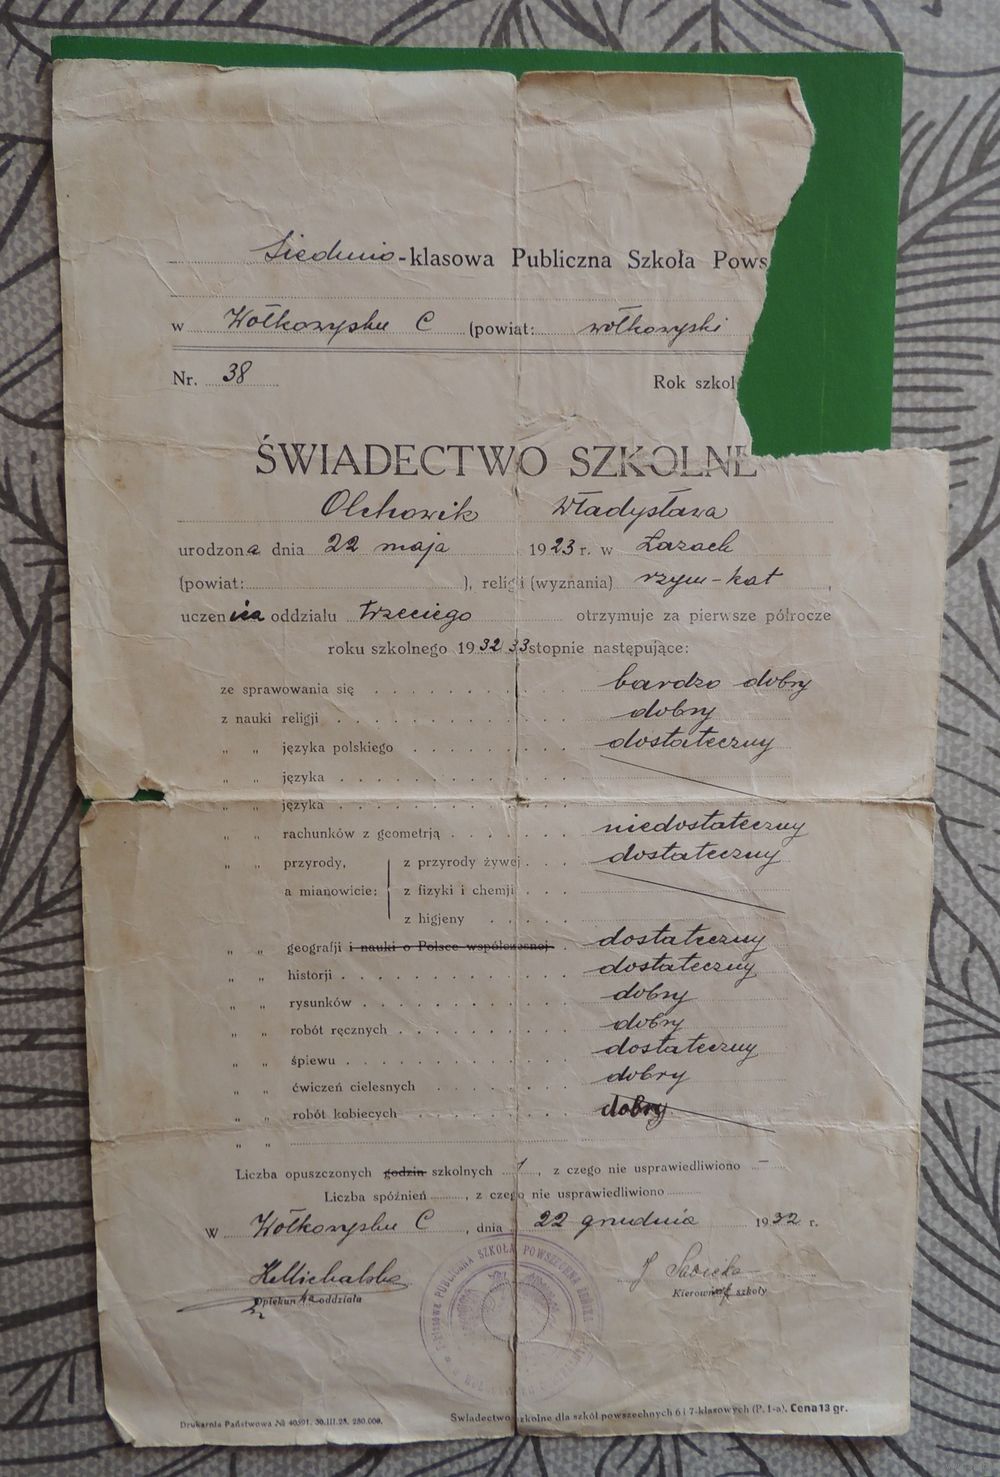 Siedmio-klasowa Publiczna Szkoła Pows
w Wołkowysku C (powiat: wołkowyski
Nr. 38 Rok szkol
ŚWIADECTWO SZKOLNE
Olchowik Władysława
urodzona dnia 22 maja 1923 r. w Łazach
(powiat: ), religji (wyznania) rzym-kat,
uczenica oddziału trzeciego otrzymuje za pierwsze półrocze
roku szkolnego 1932/33 stopnie następujące:
ze sprawowania się . . . bardzo dobry
z nauki religji . . . dobry
" " języka polskiego . . . dostateczny
" " języka . . .
" " języka . . .
" " rachunków z geometrją . . . niedostateczny
" " przyrody, z przyrody żywej . . . dostateczny
a mianowicie: z fizyki i chemji . . .
z higjeny . . .
" " geografji i nauki o Polsce współczesnej . dostateczny
" " historji . . . dostateczny
" " rysunków . . . dobry
" " robót ręcznych . . . dobry
" " śpiewu . . . dostateczny
" " ćwiczeń cielesnych . . . dobry
" " robót kobiecych . . . dobry
" "
Liczba opuszczonych godzin szkolnych 1, z czego nie usprawiedliwiono —
Liczba spóźnień , z czego nie usprawiedliwiono
W Wołkowysku C, dnia 22 grudnia 1932 r.
Opiekunka oddziała
Kierownik szkoły
PUBLICZNA SZKOŁA POWSZECHNA
Drukarnia Państwowa № 40391. 30.III.28. 250.000.
Świadectwo szkolne dla szkół powszechnych 6 i 7-klasowych (P. 1-a). Cena 13 gr.